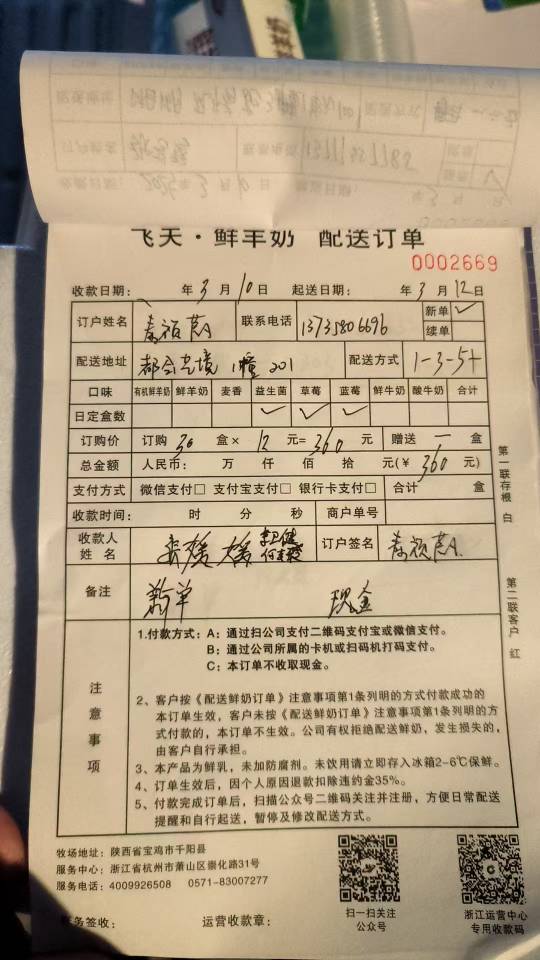 飞天·鲜羊奶 配送订单
0002669
收款日期: 年3月10日 起送日期: 年3月12日
订户姓名 联系电话 13735806696 新单 ✓
续单
配送地址 都会艺境 1幢 201 配送方式 1-3-5+
口味 有机鲜羊奶 鲜羊奶 麦香 益生菌 草莓 蓝莓 鲜牛奶 酸牛奶 合计
日定盒数 ✓ ✓ ✓
订购价 订购 30 盒× 12 元= 360 元 赠送 一 盒
总金额 人民币: 万 仟 佰 拾 元(¥ 360 元)
支付方式 微信支付□ 支付宝支付□ 银行卡支付□ 合计 盒
收款时间: 时 分 秒 商户单号
收款人
姓名 订户签名
备注 新单 现金
注意事项
1.付款方式: A: 通过扫公司支付二维码支付宝或微信支付。
B: 通过公司所属的卡机或扫码机打码支付。
C: 本订单不收取现金。
2、客户按《配送鲜奶订单》注意事项第1条列明的方式付款成功的
本订单生效，客户未按《配送鲜奶订单》注意事项第1条列明的方
式付款的，本订单不生效。公司有权拒绝配送鲜奶，发生损失的，
由客户自行承担。
3、本产品为鲜乳，未加防腐剂。未饮用请立即存入冰箱2-6℃保鲜。
4、订单生效后，因个人原因退款扣除违约金35%。
5、付款完成订单后，扫描公众号二维码关注并注册，方便日常配送
提醒和自行起送，暂停及修改配送方式。
第一联存根 白
第二联客户 红
牧场地址: 陕西省宝鸡市千阳县
服务中心: 浙江省杭州市萧山区崇化路31号
服务电话: 4009926508 0571-83007277
扫一扫关注
公众号
浙江运营中心
专用收款码
务签收: 运营收款章: